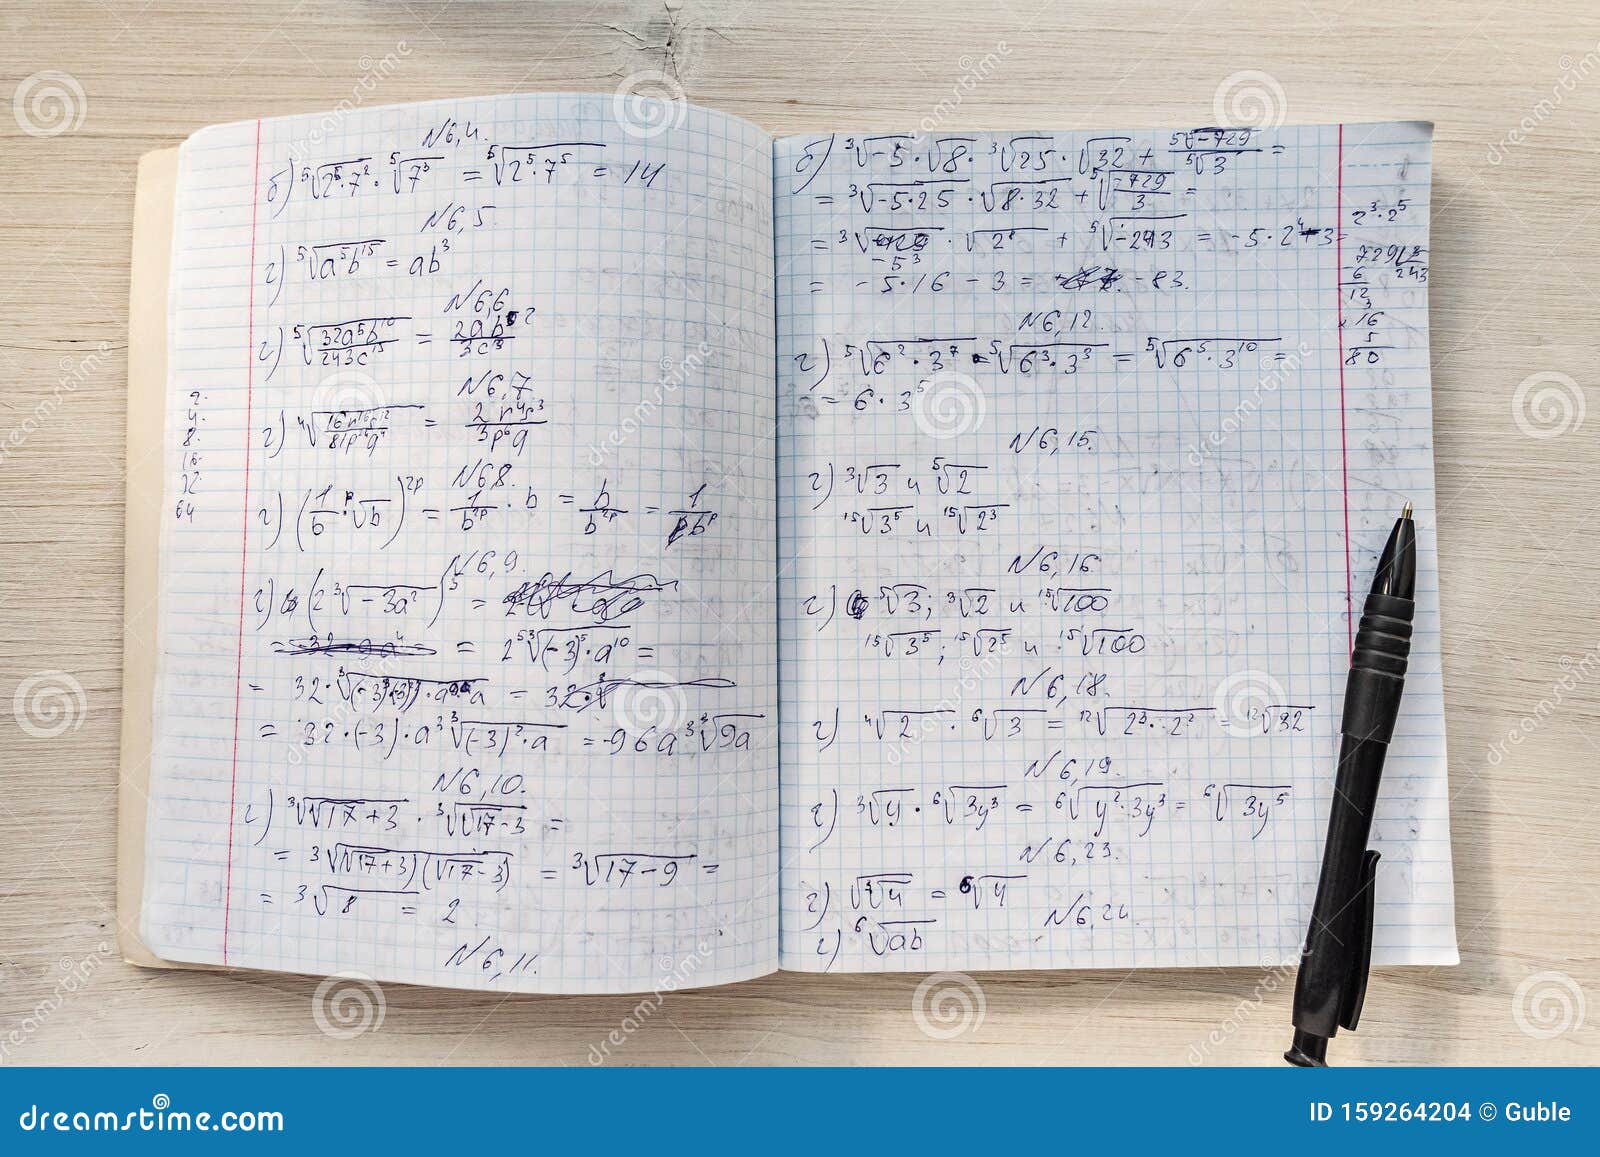 N6,4.
б) ⁵√(2⁵·7²) · ⁵√(7³) = ⁵√(2⁵·7⁵) = 14
N6,5.
г) ⁵√(a⁵b¹⁵) = ab³
N6,6
г) ⁵√(32a⁵b¹⁰/243c¹⁵) = 2ab²/3c³
N6,7
г) ⁴√(16r¹⁶s¹²/81p²⁴q⁴) = 2r⁴s³/3p⁶q
2.
4.
8.
16.
32
64
N6.8.
г) (1/b · ᵖ√b)²ᵖ = 1/b²ᵖ · b = b/b²ᵖ = 1/bᵖ
N6,9.
г) (2 ³√(-3a²))⁵ =
= 2⁵ ³√((-3)⁵·a¹⁰) =
= 32·³√((-3)³(-3)²)·a⁹·a = 32
= 32·(-3)·a³ ³√((-3)²·a) = -96a³ ³√(9a)
N6,10.
г) ³√(√17+3) · ³√(√17-3) =
= ³√((√17+3)(√17-3)) = ³√(17-9) =
= ³√8 = 2
N6,11.
б) ³√-5 · √8 · ³√25 · √32 + ⁵√-729/⁵√3 =
= ³√(-5·25) · √(8·32) + ⁵√(-729/3) =
= ³√(-5³) · √(2⁸) + ⁵√-243 = -5·2⁴-3=
= -5·16 - 3 = -83.
2³·2⁵
729 3
6 243
12
16
5
80
N6,12.
г) ⁵√(6²·3⁷) · ⁵√(6³·3³) = ⁵√(6⁵·3¹⁰) =
= 6·3⁵
N6,15.
г) ³√3 и ⁵√2
¹⁵√(3⁵) и ¹⁵√(2³)
N6,16.
г) ³√3; ³√2 и ¹⁵√100
¹⁵√(3⁵); ¹⁵√(2⁵) и ¹⁵√100
N6,18.
г) ⁴√2 · ⁶√3 = ¹²√(2³·2²) = ¹²√32
N6,19.
г) ³√y · ⁶√(3y³) = ⁶√(y²·3y³) = ⁶√(3y⁵)
N6,23.
г) √(³√4) = ⁶√4
N6,24.
г) ⁶√(ab)
dreamstime.com
ID 159264204 © Guble